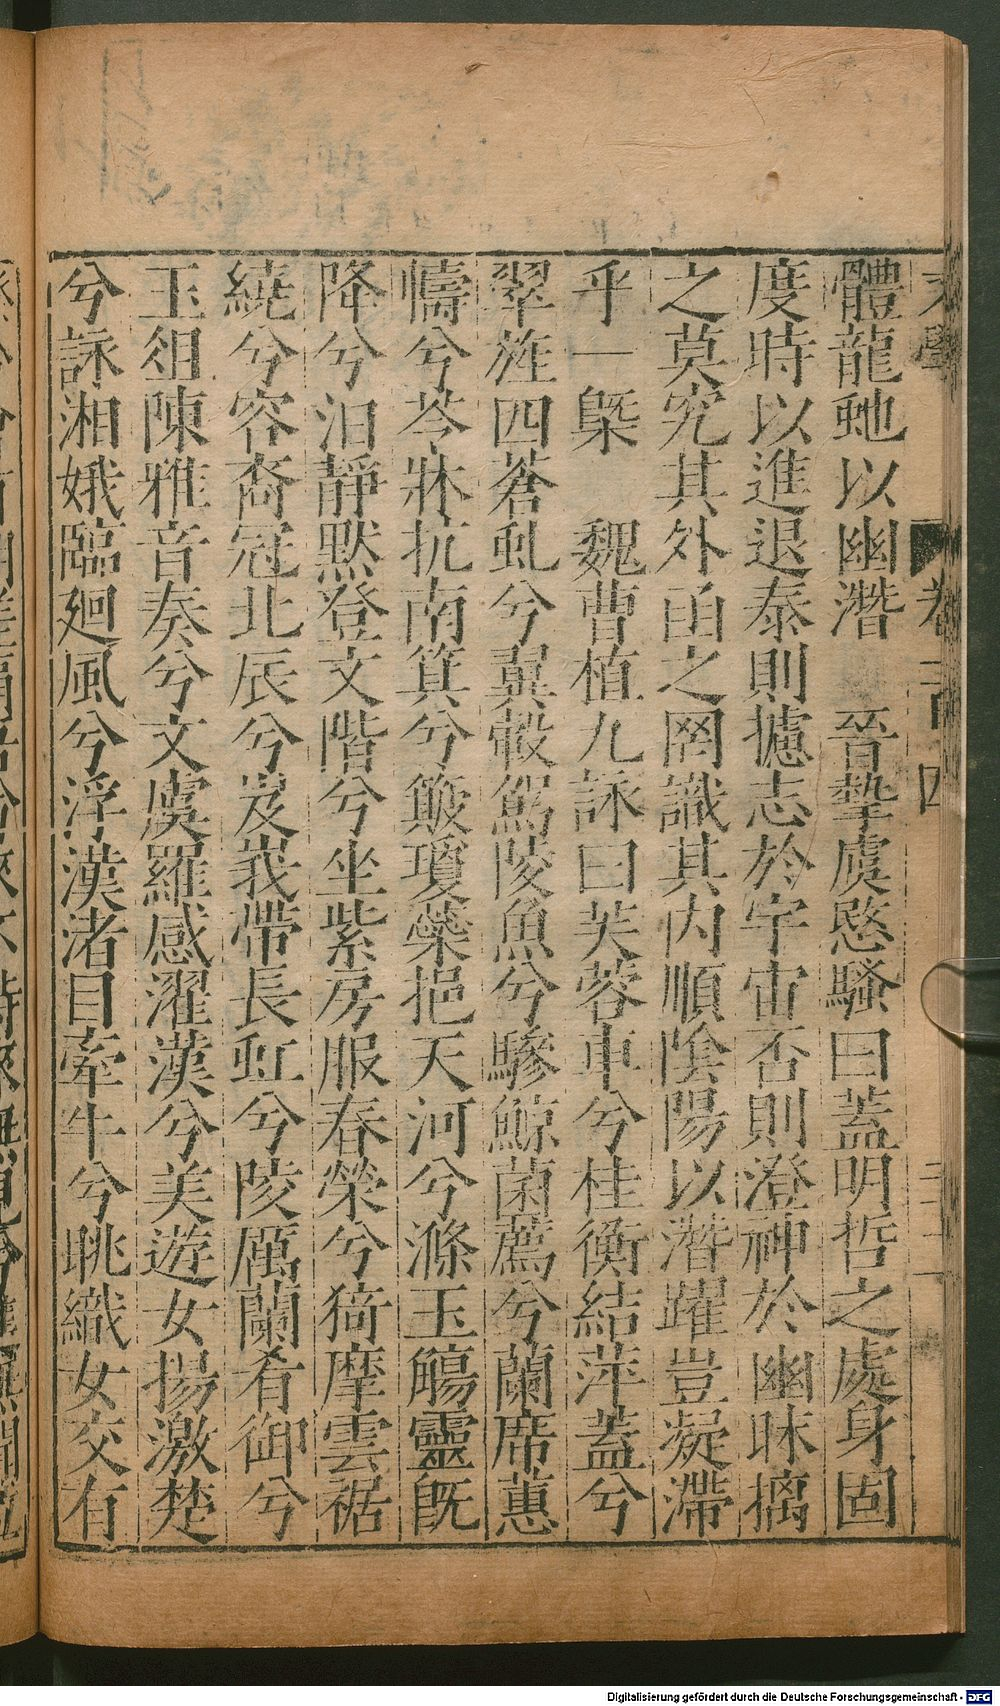 體龍虵以幽潛　晉摯虞愍騷曰蓋明哲之處身固
度時以進退泰則攄志於宇宙否則澄神於幽昧摛
之莫究其外函之罔識其内順隂陽以潛躍豈凝滯
乎一槩　魏曹植九詠曰芙蓉車兮桂衡結萍蓋兮
翠旌四蒼虬兮翼轂駕陵魚兮驂鯨菌薦兮蘭席蕙
幬兮苓牀抗南箕兮簸瓊蘂挹天河兮滌玉觴靈旣
降兮泪靜默登文階兮坐紫房服春榮兮猗摩雲裾
繞兮容裔冠北辰兮岌峩帶長虹兮陵厲蘭肴御兮
玉俎陳雅音奏兮文虞羅感濯漢兮美遊女揚激楚
兮詠湘娥臨廻風兮浮漢渚目牽牛兮眺織女交有
Digitalisierung gefördert durch die Deutsche Forschungsgemeinschaft - DFG